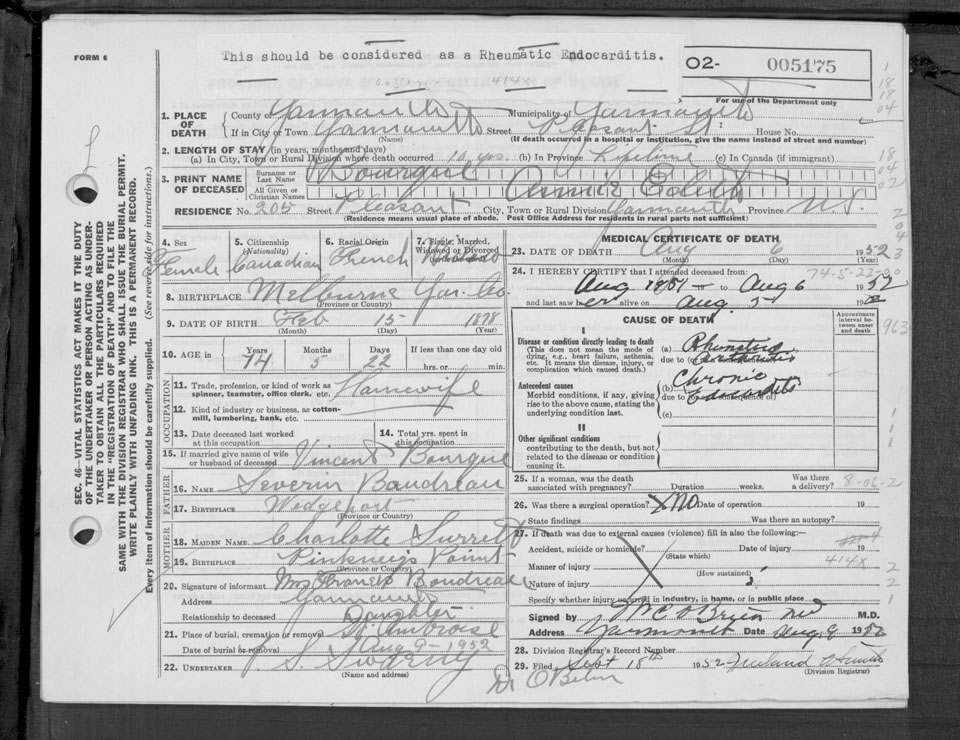 FORM 6
This should be considered as a Rheumatic Endocarditis.
O2- 005175
414x
For use of the Department only
1. PLACE OF DEATH
County of Yarmouth Municipality of Yarmouth
If in City or Town Yarmouth Street Pleasant St House No.
(Name) (If death occurred in a hospital or institution, give the name instead of street and number)
2. LENGTH OF STAY (in years, months and days)
(a) In City, Town or Rural Division where death occurred 10 yrs. (b) In Province Lifetime (c) In Canada (if immigrant)
3. PRINT NAME OF DECEASED
Surname or Last Name Bourque
All Given or Christian Names Annie Edith
RESIDENCE No. 205 Street Pleasant City, Town or Rural Division Yarmouth Province N.S.
(Residence means usual place of abode. Post Office Address for residents in rural parts not sufficient)
SEC. 46—VITAL STATISTICS ACT MAKES IT THE DUTY
OF THE UNDERTAKER OR PERSON ACTING AS UNDER-
TAKER TO OBTAIN ALL THE PARTICULARS REQUIRED
IN THE "REGISTRATION OF DEATH" AND TO FILE THE
SAME WITH THE DIVISION REGISTRAR WHO SHALL ISSUE THE BURIAL PERMIT.
WRITE PLAINLY WITH UNFADING INK. THIS IS A PERMANENT RECORD.
Every item of information should be carefully supplied. (See reverse side for instructions.)
4. Sex 5. Citizenship (Nationality) 6. Racial Origin 7. Single, Married, Widowed
Female Canadian French
8. BIRTHPLACE Melburne Yar. Co.
(Province or Country)
9. DATE OF BIRTH Feb 15 1878
(Month) (Day) (Year)
10. AGE in Years Months Days If less than one day old
74 5 22 hrs. or min.
OCCUPATION
11. Trade, profession, or kind of work as Housewife
spinner, teamster, office clerk, etc.
12. Kind of industry or business, as cotton-
mill, lumbering, bank, etc.
13. Date deceased last worked at this occupation
14. Total yrs. spent in this occupation
15. If married give name of wife or husband of deceased Vincent Bourque
FATHER
16. NAME Severin Boudreau
17. BIRTHPLACE Wedgeport
(Province or Country)
MOTHER
18. MAIDEN NAME Charlotte Surrett
19. BIRTHPLACE Pinkney's Point
(Province or Country)
20. Signature of informant Mrs Francis Boudreau
Address Yarmouth
Relationship to deceased Daughter
21. Place of burial, cremation or removal St. Ambroise
Date of burial or removal Aug 9 - 1952
22. UNDERTAKER S. Sweeny
(Name and address)
MEDICAL CERTIFICATE OF DEATH
23. DATE OF DEATH Aug 6 1952
(Month) (Day) (Year)
24. I HEREBY CERTIFY that I attended deceased from:
74-5-22-00
Aug 1951 to Aug 6 1952
and last saw her alive on Aug 5 19
CAUSE OF DEATH
Approximate interval between onset and death
I
Disease or condition directly leading to death
(This does not mean the mode of dying, e.g., heart failure, asthenia, etc. It means the disease, injury, or complication which caused death.)
(a) Rheumatoid
due to (
Antecedent causes
Morbid conditions, if any, giving rise to the above cause, stating the underlying condition last.
(b) Chronic Endocarditis
due to (or as a consequence of)
(c)
II
Other significant conditions
contributing to the death, but not related to the disease or condition causing it.
25. If a woman, was the death associated with pregnancy? Duration weeks. Was there a delivery? 8-06-2
26. Was there a surgical operation? No Date of operation 19
State findings Was there an autopsy?
27. If death was due to external causes (violence) fill in also the following:—
Accident, suicide or homicide? Date of injury 19
(State which)
Manner of injury 414x
(How sustained)
Nature of injury
Specify whether injury occurred in industry, in home, or in public place
Signed by W C O'Brien MD M.D.
Address Yarmouth Date Aug. 9 1952
28. Division Registrar's Record Number
29. Filed Sept 18th 1952
(Division Registrar)
Dr O'Brien
963